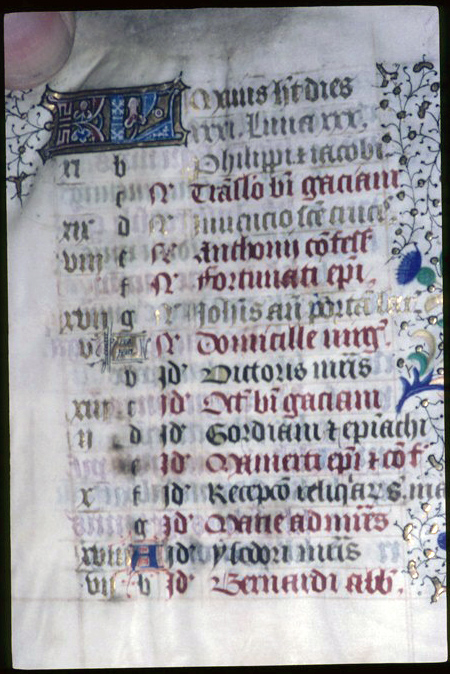 Maius ht dies
xxxi. Luna xxx.
xi b Philippi ⁊ iacobi
c N Trāslo bī gaciani
xix d N Inuencio scē crucis
viij e N Anthonij cōfess
f N Fortunati epī
xvij g N Johīs añ portā lat
v N Domicille uirg
b Jd Victoris mrīs
xiij c Jd Oct bī gaciani
ij d Jd Gordiani ⁊ epimachi
e Jd Mamerti epī ⁊ cōf
x f Jd Recepcō reliq̄
g Jd Marie ad mrēs
xviij A Jd ysidori mrīs
vij b Jd Bernardi abb.